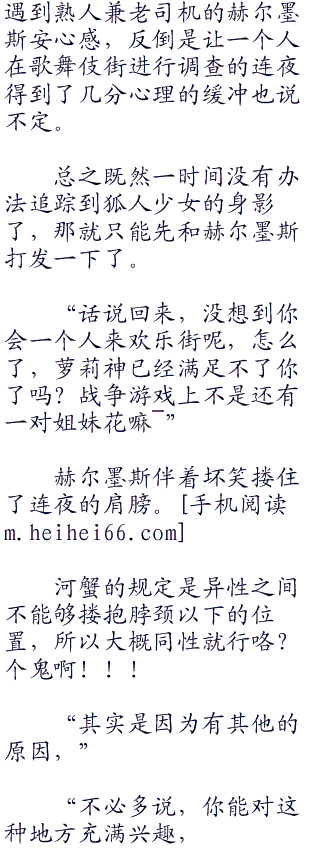 遇到熟人兼老司机的赫尔墨
斯安心感，反倒是让一个人
在歌舞伎街进行调查的连夜
得到了几分心理的缓冲也说
不定。
总之既然一时间没有办
法追踪到狐人少女的身影
了，那就只能先和赫尔墨斯
打发一下了。
“话说回来，没想到你
会一个人来欢乐街呢，怎么
了，萝莉神已经满足不了你
了吗？战争游戏上不是还有
一对姐妹花嘛¯”
赫尔墨斯伴着坏笑搂住
了连夜的肩膀。[手机阅读
m.heihei66.com]
河蟹的规定是异性之间
不能够搂抱脖颈以下的位
置，所以大概同性就行咯？
个鬼啊！！！
“其实是因为有其他的
原因，”
“不必多说，你能对这
种地方充满兴趣，